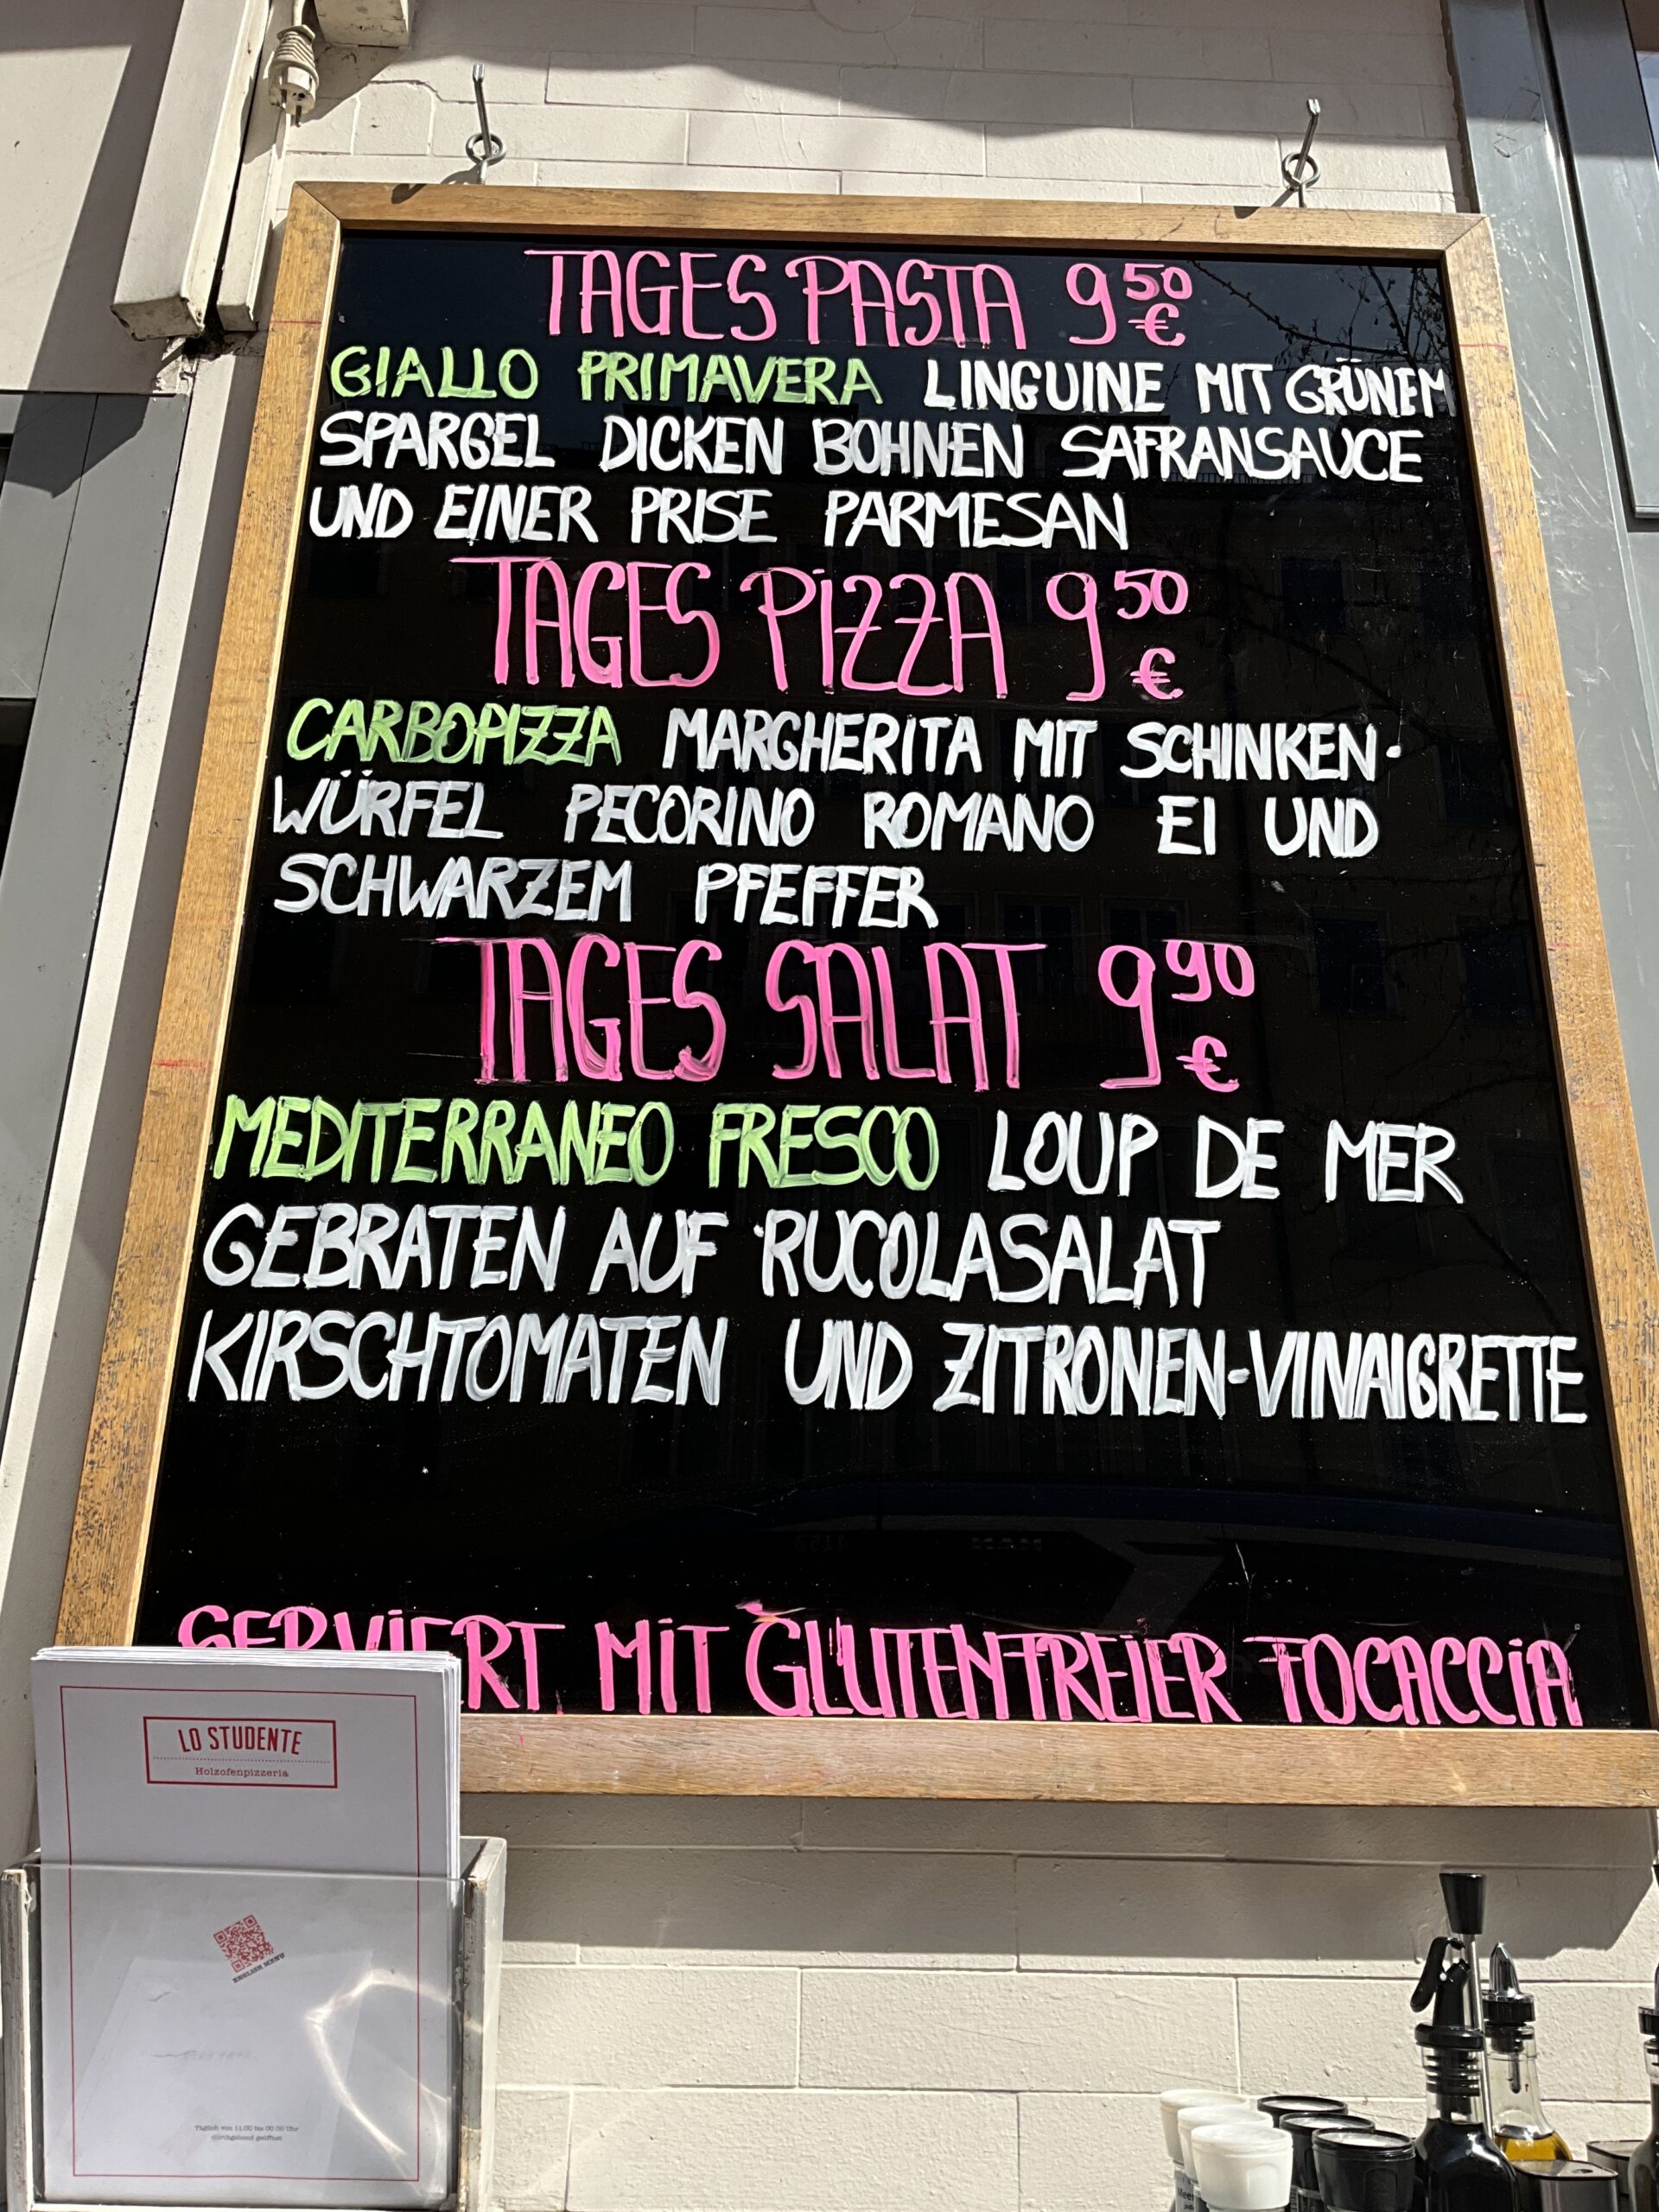 TAGES PASTA 9 50 €
GIALLO PRIMAVERA LINGUINE MIT GRÜNEM
SPARGEL DICKEN BOHNEN SAFRANSAUCE
UND EINER PRISE PARMESAN
TAGES PIZZA 9 50 €
CARBOPIZZA MARGHERITA MIT SCHINKEN-
WÜRFEL PECORINO ROMANO EI UND
SCHWARZEM PFEFFER
TAGES SALAT 9 90 €
MEDITERRANEO FRESCO LOUP DE MER
GEBRATEN AUF RUCOLASALAT
KIRSCHTOMATEN UND ZITRONEN-VINAIGRETTE
SERVIERT MIT GLUTENFREIER FOCACCIA
LO STUDENTE
Holzofenpizzeria
ENGLISH MENU
Täglich von 11:00 bis 00:00 Uhr
durchgehend geöffnet